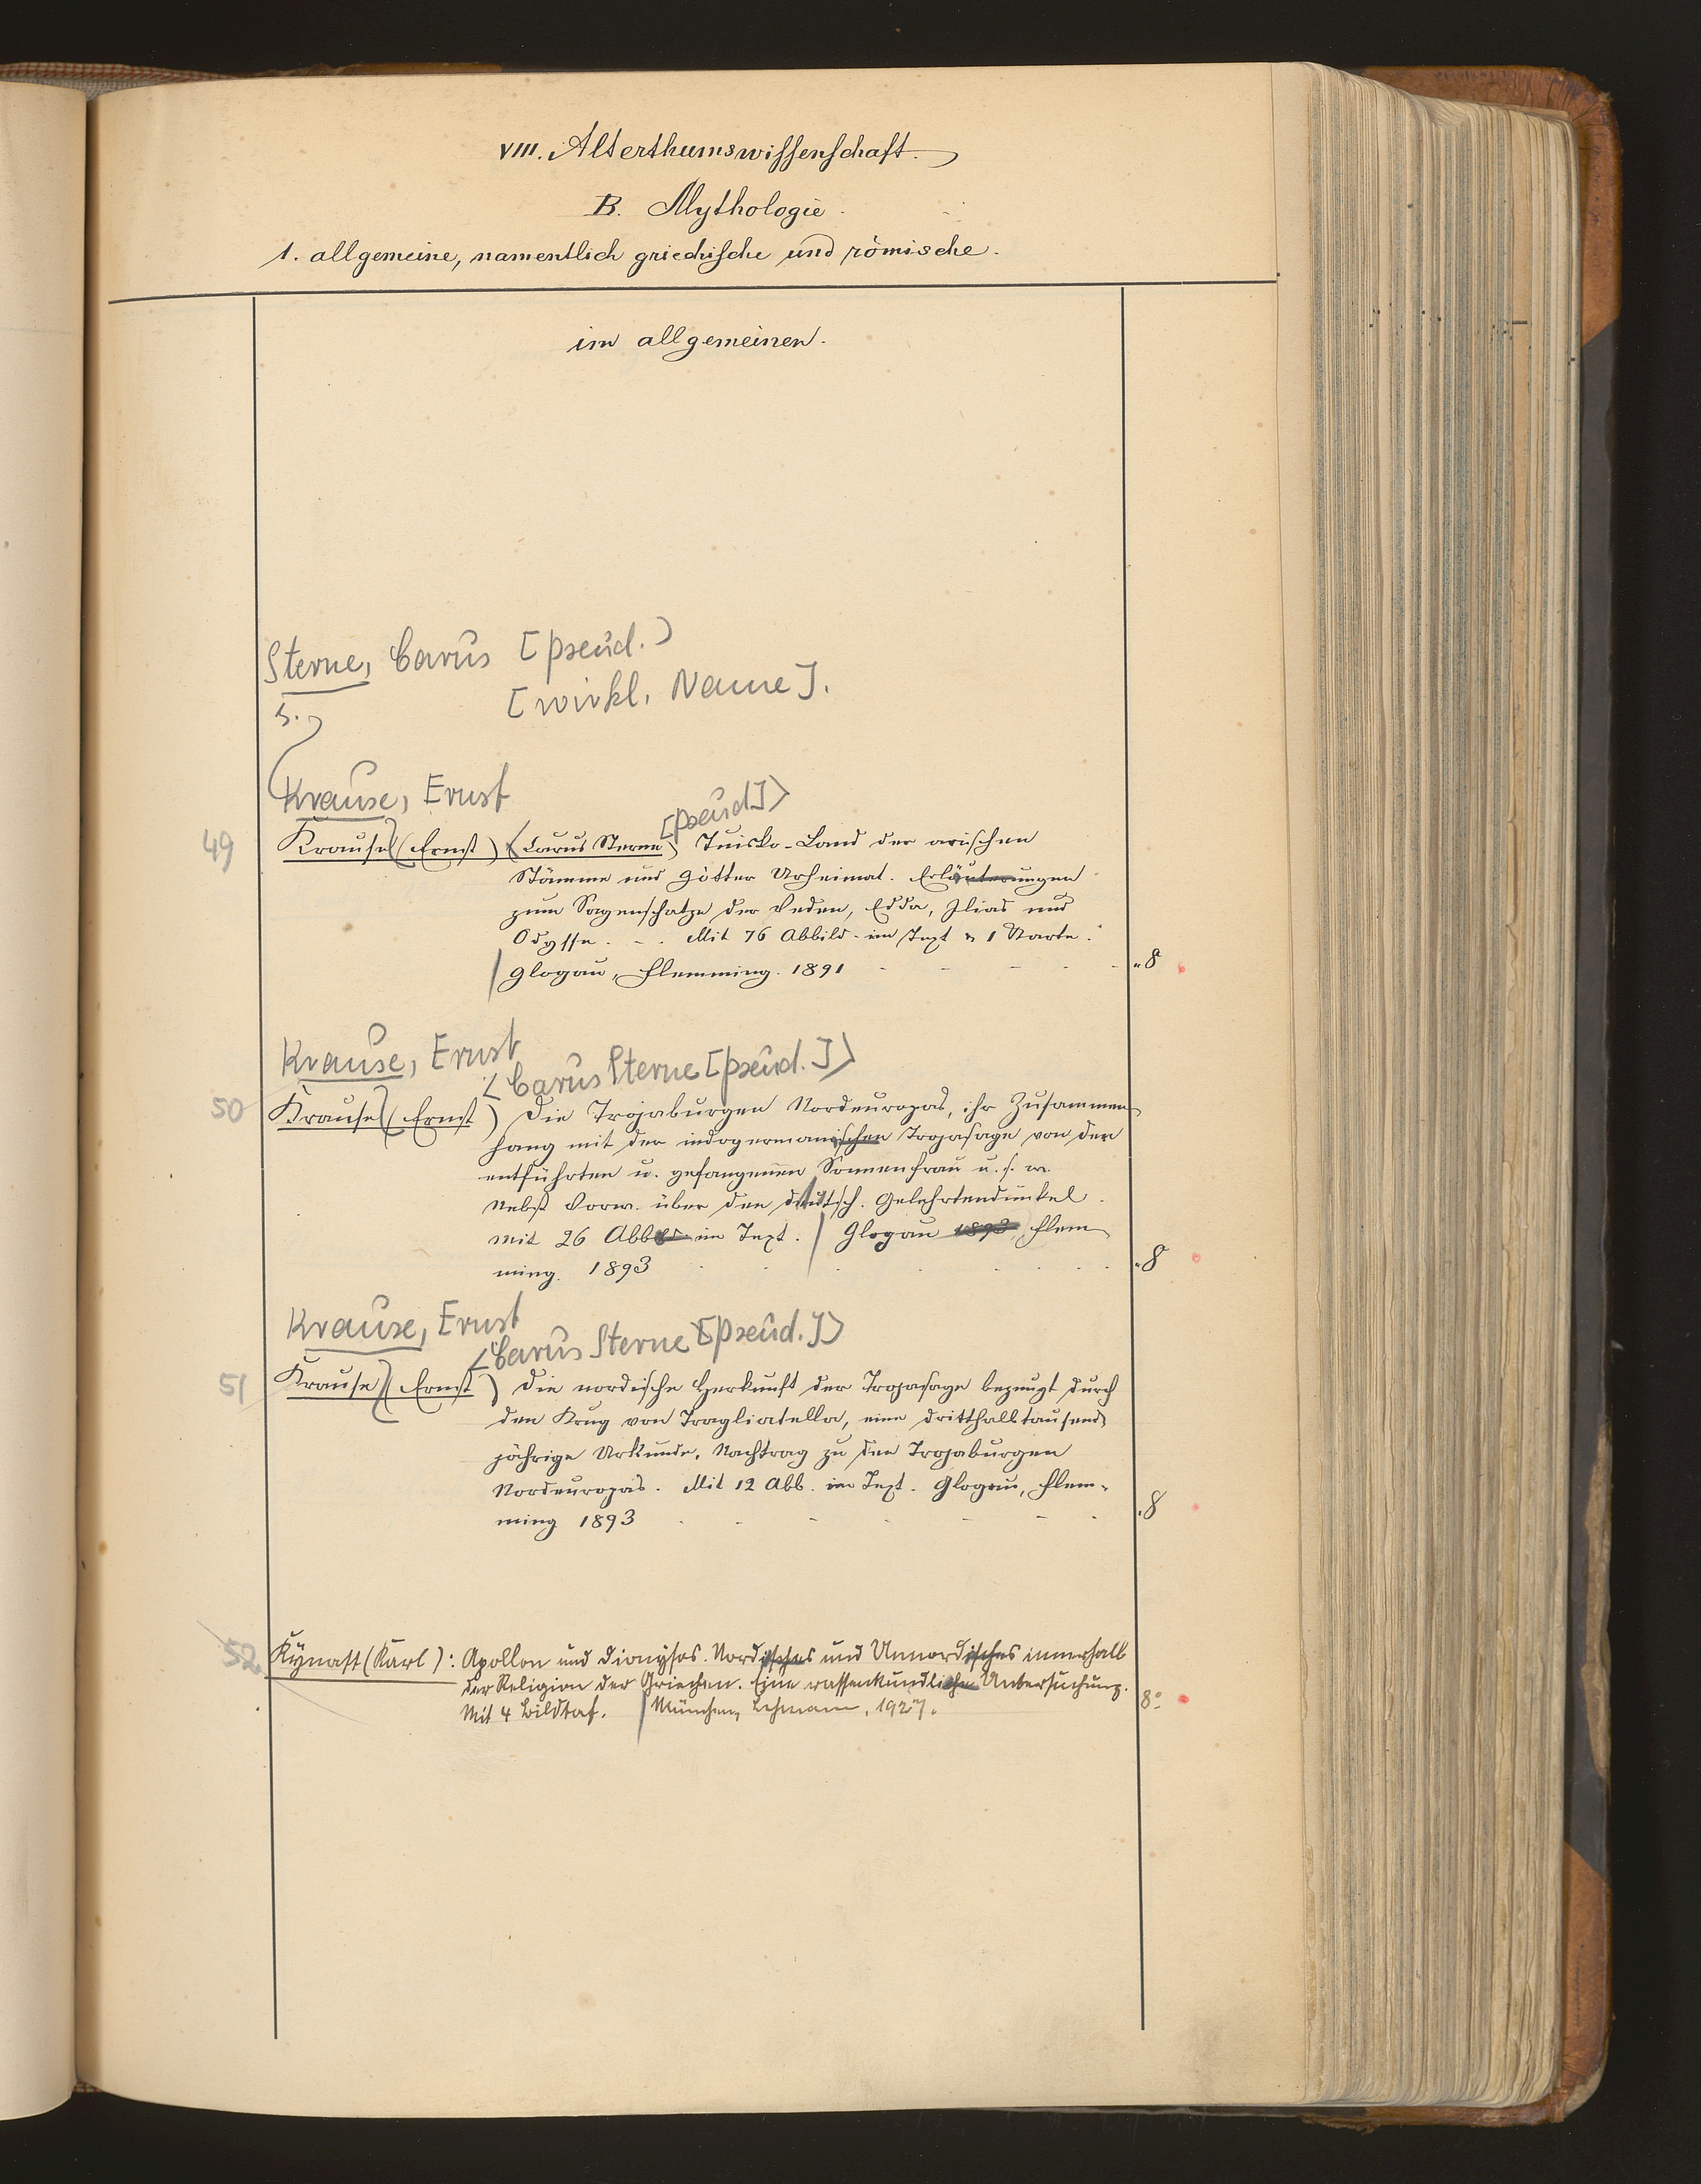 VIII. Alterthumswissenschaft.
B. Mythologie.
1. allgemeine, namentlich griechische und römische.
im allgemeinen.
Sterne, Carus [pseud.]
[wirkl. Name].
s.
Krause, Ernst
[pseud]>
49 Krause (Ernst) (Carus Sterne) Tuisko-Land der arischen
Stämme und Götter Urheimat. Erläuterungen
zum Sagenschatze der Veden, Edda, Ilias und
Odyssee. - . Mit 76 Abbild. im Text u 1 Karte.
Glogau, Flemming. 1891 8
Krause, Ernst
<Carus Sterne [pseud.]>
50 Krause (Ernst) Die Trojaburgen Nordeuropas, ihr Zusammen-
hang mit der indogermanischen Trojasage von der
entführten u. gefangenen Sonnenfrau u. s. w.
Nebst Vorw. über den deutsch. Gelehrtendünkel.
Mit 26 Abb im Text. Glogau 1893 Flem-
ming. 1893 8
Krause, Ernst
<Carus Sterne [pseud.]>
51 Krause (Ernst) Die nordische Herkunft der Trojasage bezeugt durch
den Krug von Tragliatella, eine dritthalbtausend-
jährige Urkunde. Nachtrag zu den Trojaburgen
Nordeuropas. Mit 12 Abb. im Text. Glogau, Flem-
ming 1893 8
52. Kynast (Karl): Apollon und Dionysos. Nordisches und Unnordisches innerhalb
der Religion der Griechen. Eine rassenkundliche Untersuchung.
Mit 4 Bildtaf. München, Lehmann, 1927. 8°